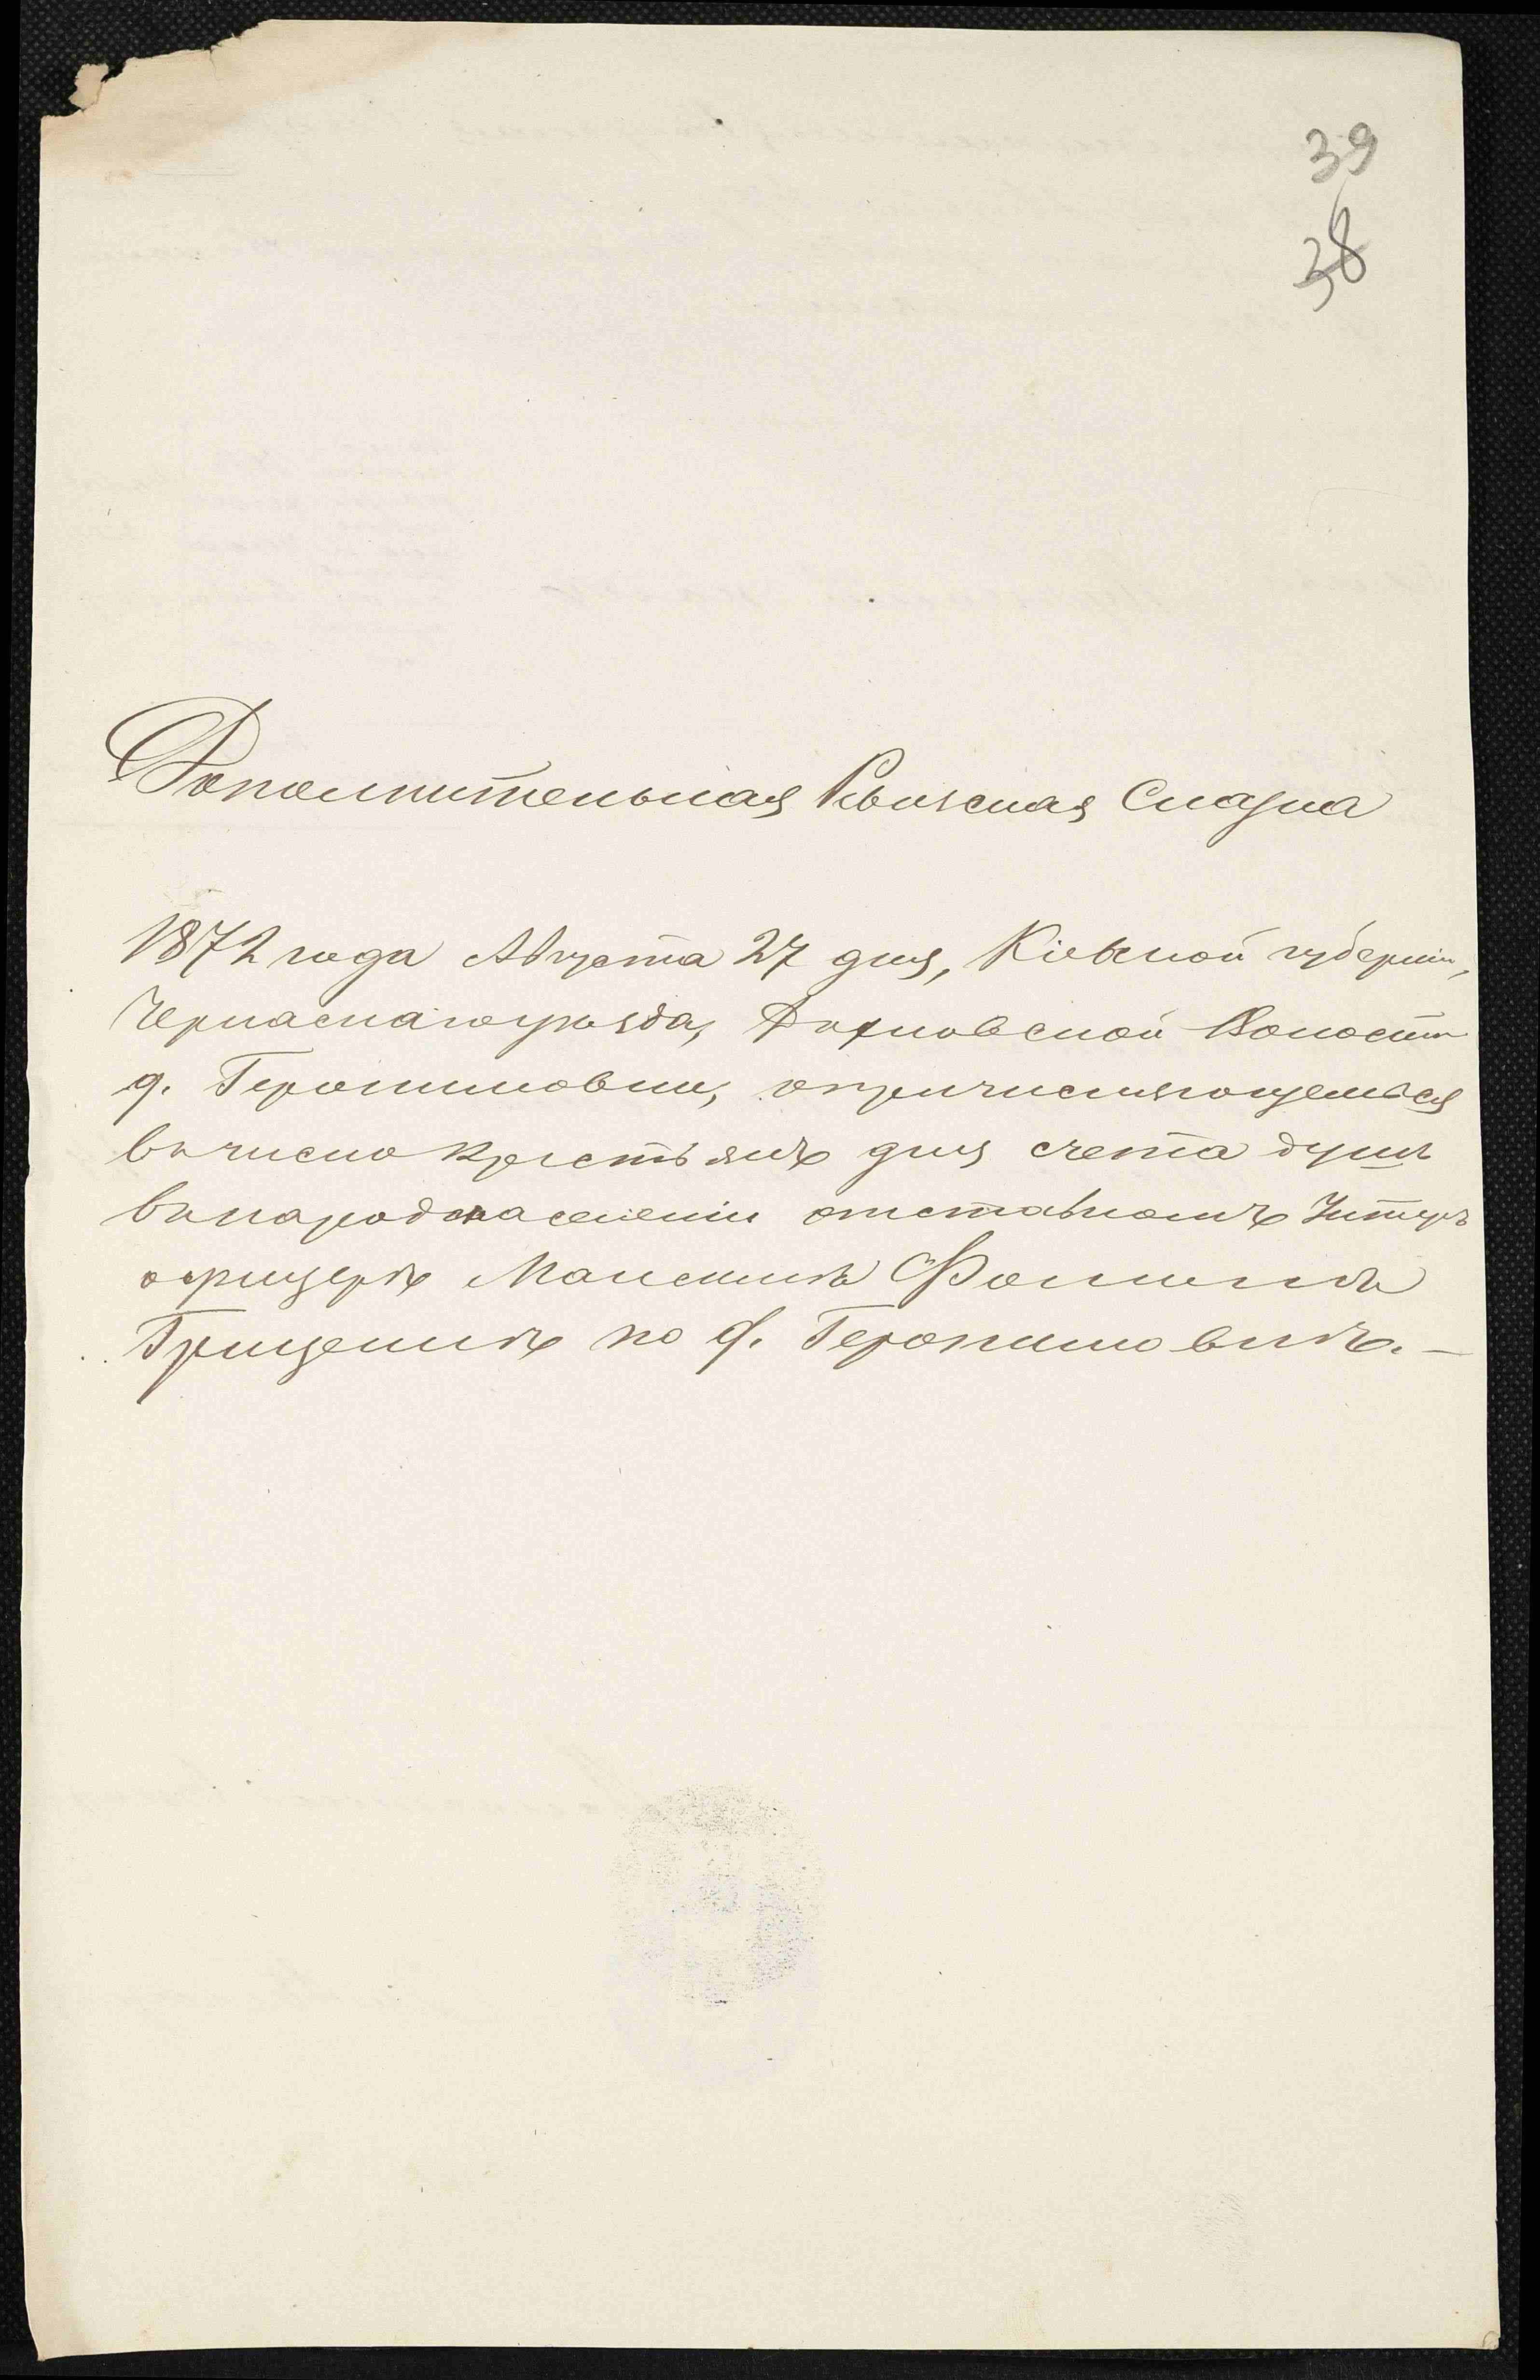 39
38
Дополнительная Ревизская Сказка
1872 года Августа 27 дня, Кіевской губерніи,
Черкаскаго уѣзда, Дахновской Волости
д. Геронимовки, о причисляющемься
въ число крестьянъ для счета душъ
въ народонаселеніи отставномъ Унтеръ
офицерѣ Максимѣ Фоминѣ
Грищенкѣ по д. Геронимовкѣ. —